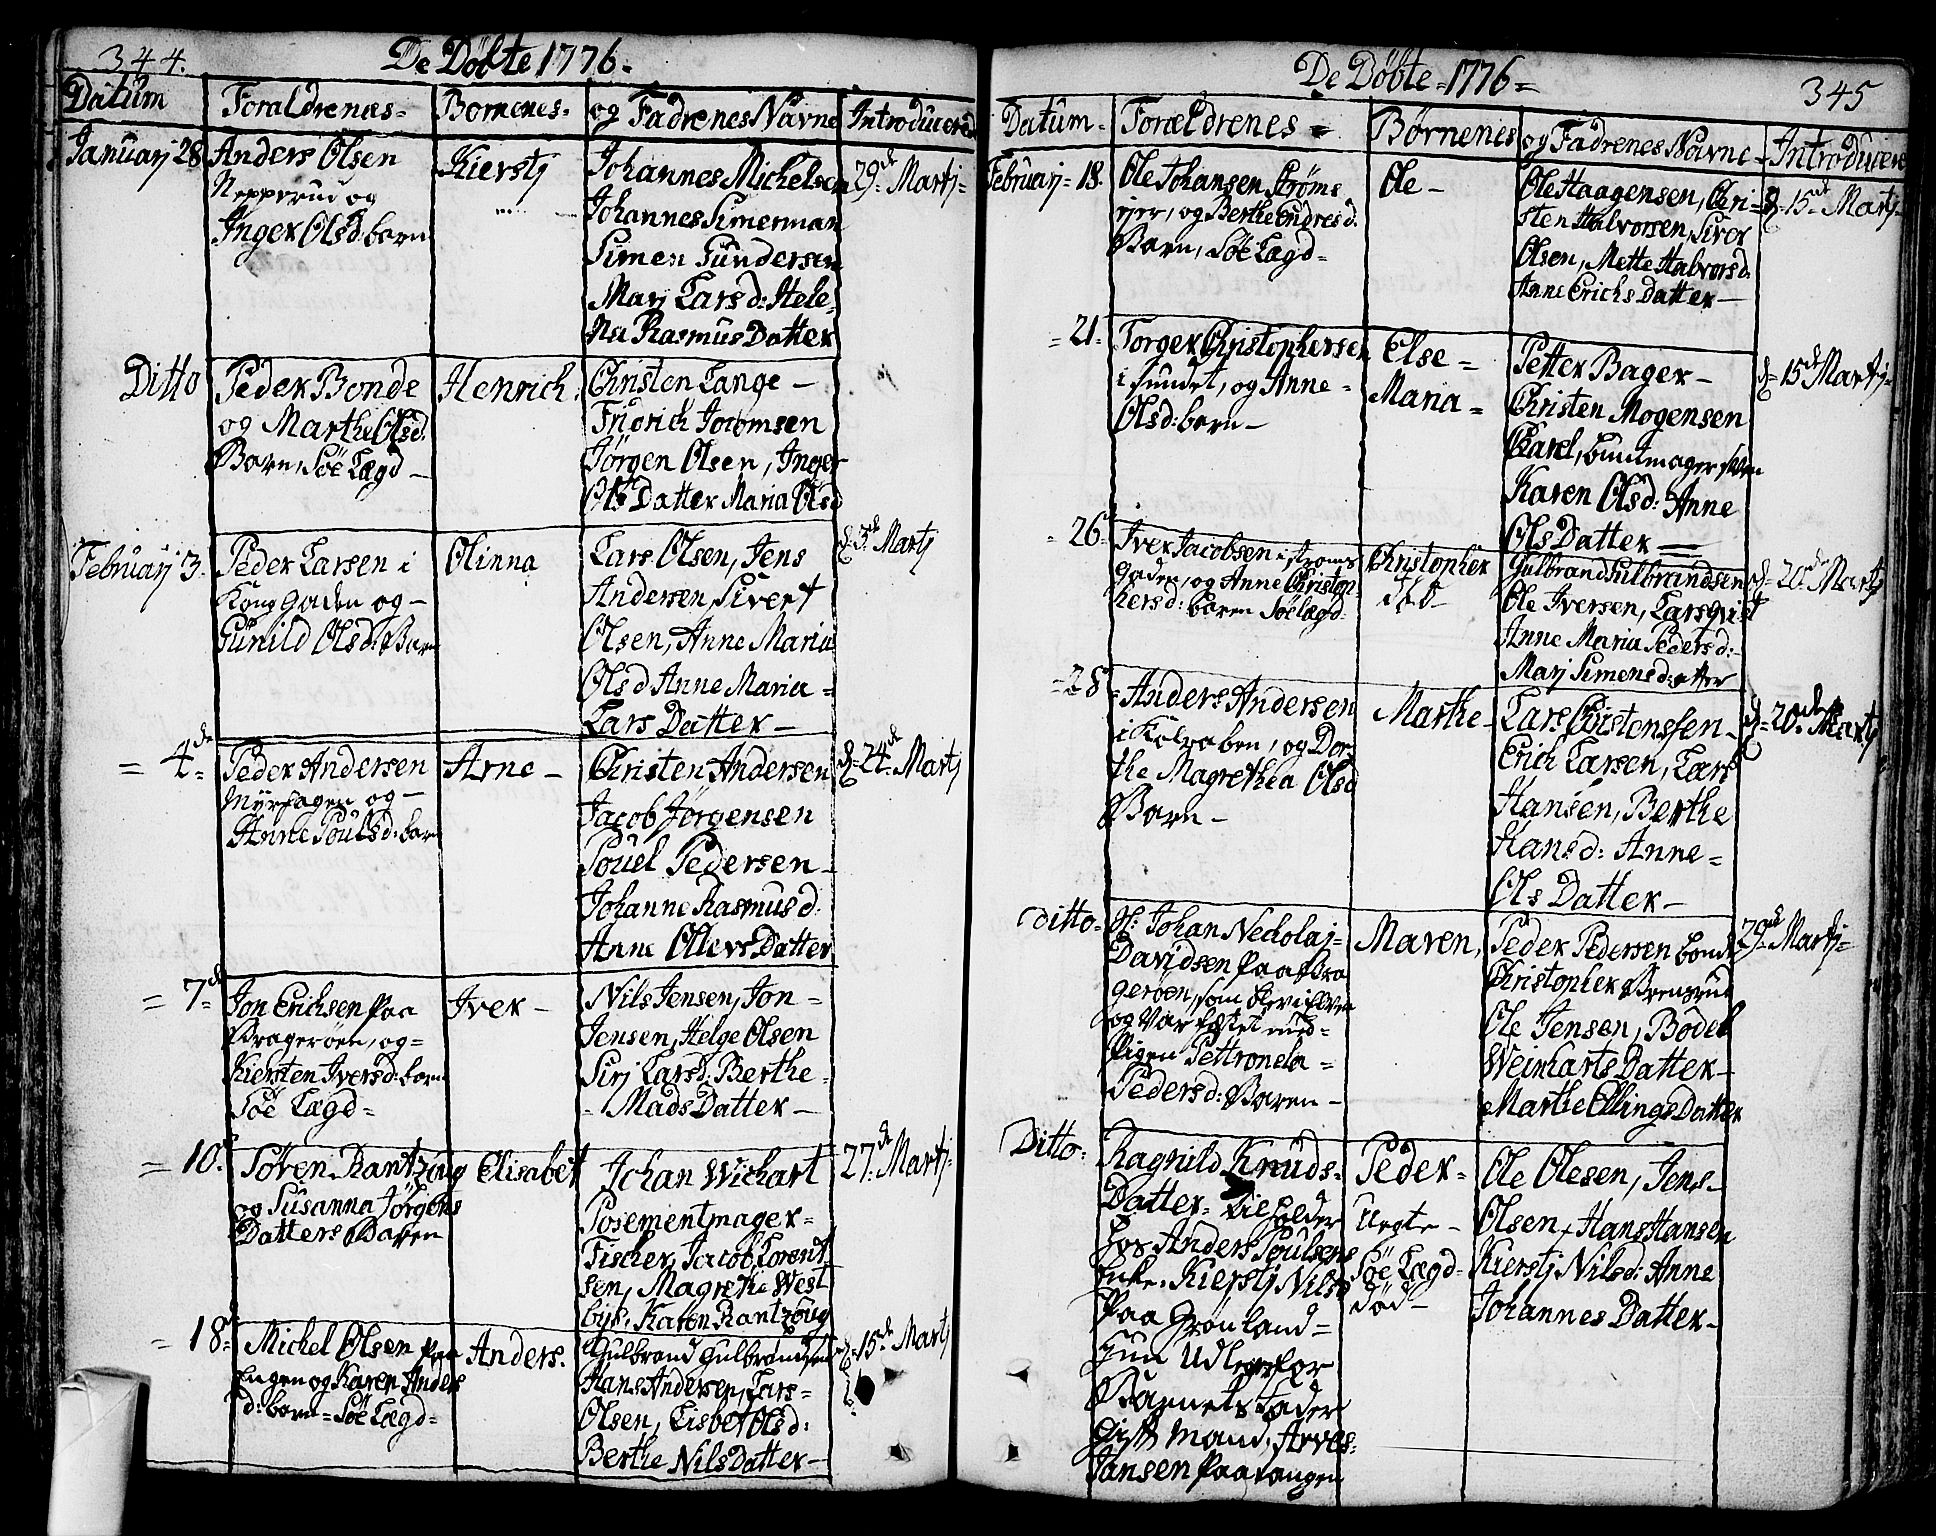 344.
De Döbte 1776.
Datum
Foraldrenes=
Bornenes=
og Fadrenes Navne
Introducered
Januarj 28
Anders Olsen
Nepperud og
Inger Olsd: barn
Kierstj
Johannes Michelsen
Johannes Simerman
Simen Gundersen
Marj Larsd: Hele-
na Rasmus Datter
29de Martj=
Ditto
Peder Bonde
og Marthe Olsd:
Barn, Söe Lægd -
Henrich.
Christen Lange -
Fridrich Jocomsen
Jörgen Olsen, Inger
Ols Datter Maria Olsd
Februarj 3.
Peder Larsen i
Kong Gaden og -
Gunild Olsd: Barn
Olinna
Lars Olsen, Jens
Andersen, Sivert
Olsen, Anne Maria
Olsd Anne Maria =
Lars Datter -
d. 3de Martj
= 4de
Peder Andersen
Myrhagen og -
Anne Poulsd: barn
Arne -
Christen Andersen
Jacob Jörgensen
Pouel Pedersen -
Johanne Rasmusd:
Anne Ollevs Datter
d. 24de Martj
= 7de
Jon Erichsen Paa
Brageröen, og =
Kiersten Iversd: barn
Söe Lægd =
Iver -
Nils Jensen, Jon =
Jensen, Helge Olsen
Sirj Larsd: Berthe =
= Mads Datter -
= 10.
Sören Rantzoug
og Susanna Jörgens
Datters Barn
Elisabet
Johan Wichart
Posementmager =
Fischer, Jacob Lorent
sen, Magrethe West
bye, Karen Rantzoug
27de Martj=
= 18.
Michel Olsen Paa
Engen og Karen Anders
d: barn = Söe Lægd =
Anders.
Gulbrand Gulbrandsen
Hans Andersen, Lars =
Olsen, Lisbet Olsd:
Berthe Nils Datter -
d. 15de Martj
De Döbte = 1776 =
345
Datum -
Forældrenes =
Börnenes
og Fadrenes Navne -
Introducere
Februarj = 18.
Ole Johansen Ströms
og Berthe Endresd:
Barn, Söe Lægd =
Ole -
Ole Haagensen, Chri-
sten Halvorsen, Siver
Olsen, Mette Halvorsd:
Anne Erichs Datter -
d. 15de Martj
= 21.
Torger Christophersen
i Sundet, og Anne -
Olsd: barn -
Else =
Maria =
Petter Bager -
Christen Mogensen
Carel, buntmager
Karen Olsd: Anne
Ols Datter =
d. 15de Martj=
= 26
Iver Jacobsen i Stroms
Gaden, og Anne Christop
hersd: Baren Söe Lægd
Christopher
död
Gulbrand Gulbrandsen
Ole Iversen, Lars Qvist
Anne Maria Pedersd: -
Marj Simensdatter
d. 20de Martj
= 28
Anders Andersen
i og Dor-
the Magrethea Olsd
Barn -
Marthe -
Lars Christenssen -
Erich Larsen, Lars
Hansen, Berthe
Hansd: Anne =
Ols Datter -
d. 20de Martj
Ditto
H: Johan Nedolaj=
Davidsen Paa Bra
geröen, som
og Var fæstet med =
Pigen Pettronela =
Pedersd: Baren -
Maren,
Peder Pedersen bonde
Christopher
Ole Jensen, Bodel
Weinharts Datter -
Marthe Ellings Datter
29de Martj=
Ditto
Ragnild Knuds-
Datter - tilholder
hos Anders Poulsens
Enke, Kierstj Nilsd
Paa Grönland =
hun udlagde for
Barnets Fader
gift Mand, Arves=
Jansen Paa tangen
Peder -
Uegte -
Söe Lægd -
död -
Ole Olesen, Jens -
Olsen, Hans Hansen
Kierstj Nilsd: Anne
Johannes Datter -